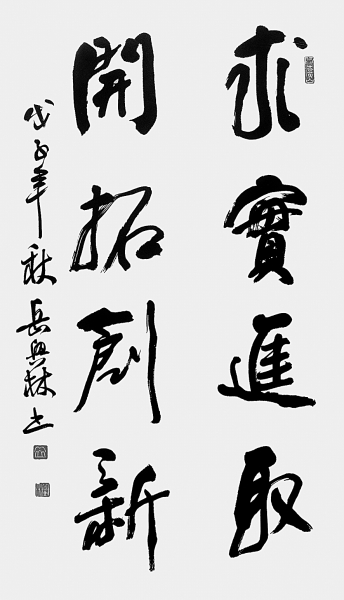 求實進取
開拓創新
戊子年秋岳興林书